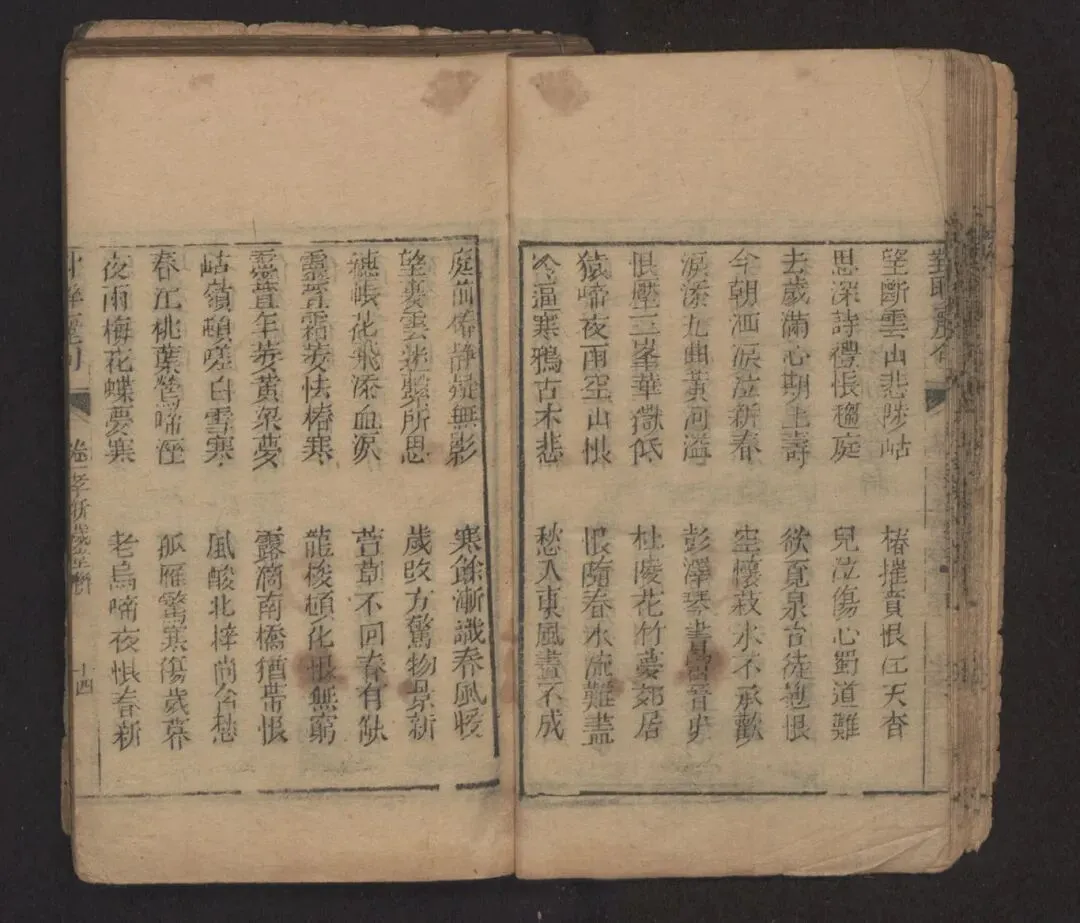 望斷雲山悲陟岵 椿摧賁恨江天杳
思深詩禮悵趨庭 兒泣傷心蜀道難
去歲滿心期上壽 欲覓泉台徒抱恨
今朝洒淚泣新春 空懷菽水不承歡
淚添九曲黃河溢 彭澤琴書
恨壓三峯華嶽低 杜陵花竹夢郊居
猿啼夜雨空山恨 恨隨春水流難盡
冷逼寒鴉古木悲 愁入東風畫不成
庭前椿靜疑無影 寒餘漸識春風暖
望裏雲迷緊所思 歲改方驚物景新
穗帳花飛添血淚 萱草不回春有
靈萱霜萎怯椿寒 龍梭頓化恨無窮
靈萱年萎黃粱夢 露滴南橋猶帶恨
岵嶺頻嗟白雪寒 風酸北梓尚含愁
春江桃葉鶯啼溼 孤雁驚寒傷歲暮
夜雨梅花蝶夢寒 老烏啼夜恨春新
卷二孝新歲 十四